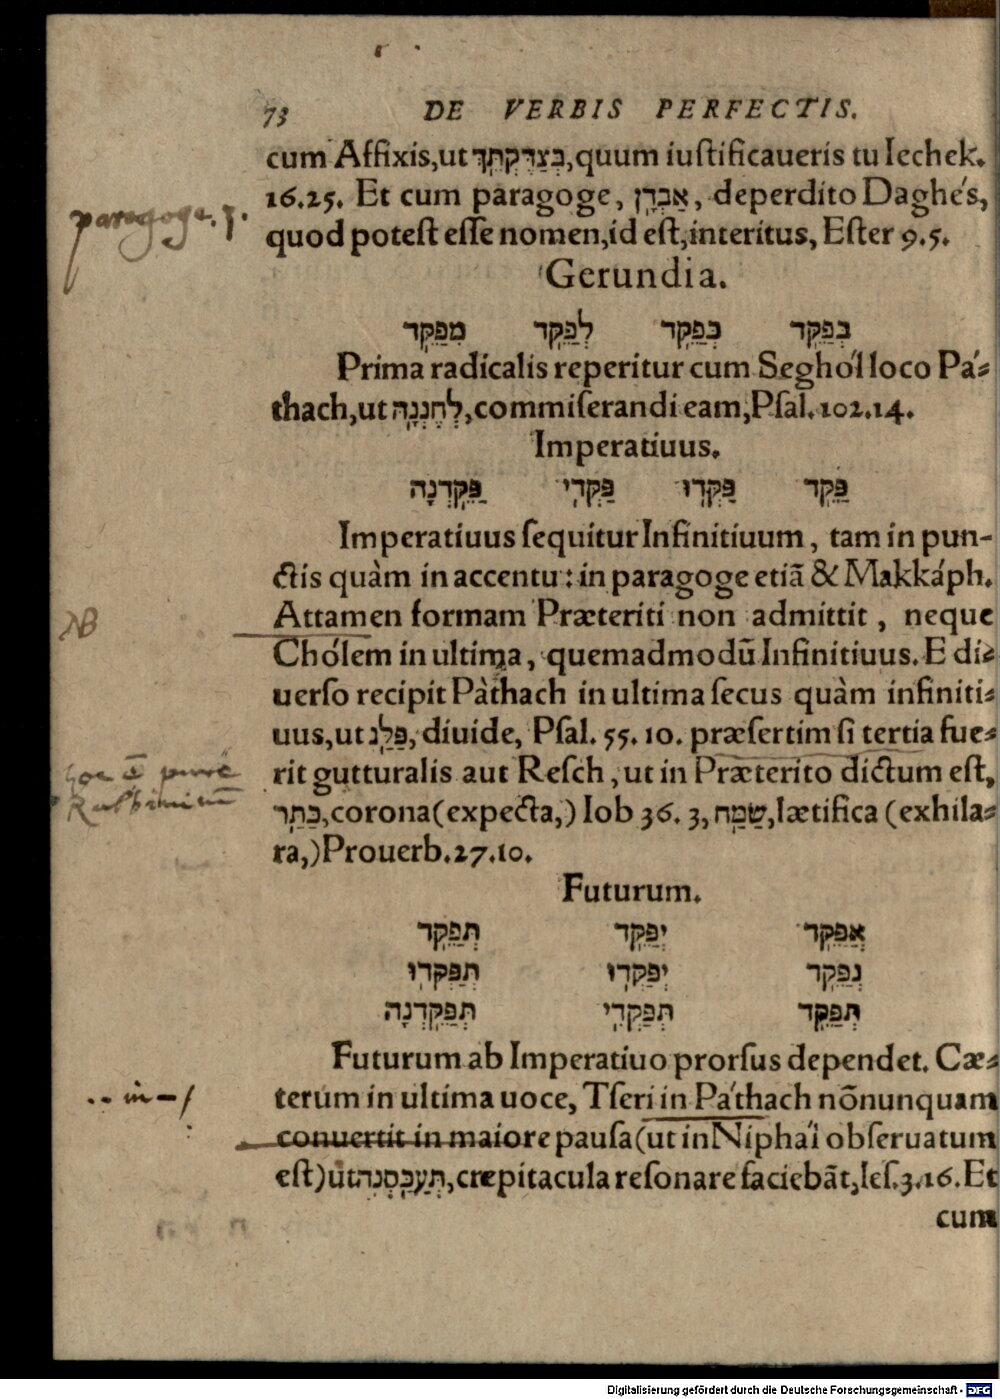 73 DE VERBIS PERFECTIS.
cum Affixis,ut בְּצַדֶּקְתֵּךְ,quum iuſtificaueris tu Iechek.
16.25. Et cum paragoge, אַבְדָן, deperdito Daghés,
paragoge.
quod poteſt eſſe nomen,id eſt,interitus, Eſter 9.5.
Gerundia.
בְּפַקֵּד כְּפַקֵּד לְפַקֵּד מִפַּקֵּד
Prima radicalis reperitur cum Seghól loco Pá⸗
thach,ut לְחֶנְנָהּ,commiſerandi eam,Pſal.102.14.
Imperatiuus.
פַּקֵּד פַּקְּדוּ פַּקְּדִי פַּקֵּדְנָה
Imperatiuus ſequitur Infinitiuum, tam in pun-
ctis quàm in accentu: in paragoge etiã & Makkáph.
NB
Attamen formam Præteriti non admittit, neque
Chólem in ultima, quemadmodũ Infinitiuus. E di⸗
uerſo recipit Pàthach in ultima ſecus quàm infiniti⸗
uus,ut פַּלַּג, diuide, Pſal. 55. 10. præſertim ſi tertia fue⸗
rit gutturalis aut Reſch, ut in Præterito dictum eſt,
כַּתַּר,corona(expecta,) Iob 36. 3, שַׂמַּח,lætifica (exhila⸗
ra,)Prouerb.27.10.
Futurum.
אֲפַקֵּד יְפַקֵּד תְּפַקֵּד
נְפַקֵּד יְפַקְּדוּ תְּפַקְּדוּ
תְּפַקֵּד תְּפַקְּדִי תְּפַקֵּדְנָה
Futurum ab Imperatiuo prorſus dependet. Cæ⸗
terum in ultima uoce, Tſeri in Páthach nõnunquam
.. in - /
conuertit in maiore pauſa(ut in Niphál obſeruatum
eſt)ut תְּעַכַּסְנָה,crepitacula reſonare faciebãt,Ieſ.3.16.Et
cum
Digitalisierung gefördert durch die Deutsche Forschungsgemeinschaft - DFG